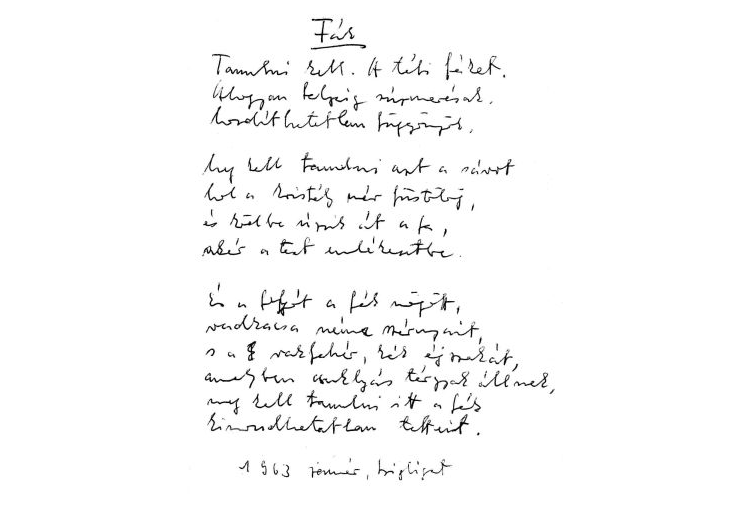 Fák
Tanulni kell. A téli fákat.
Ahogyan talpig zúzmarásak.
Mozdíthatatlan függönyök.
Meg kell tanulni azt a sávot
hol a kristály már füstölög,
és ködbe úszik át a fa,
akár a test emlékezetbe.
És a folyót a fák mögött,
vadkacsa néma szárnyait,
s a vakfehér, kék éjszakát,
amelyben csuklyás tárgyak állnak,
meg kell tanulni itt a fák
kimondhatatlan tetteit.
1963 január, Szigliget